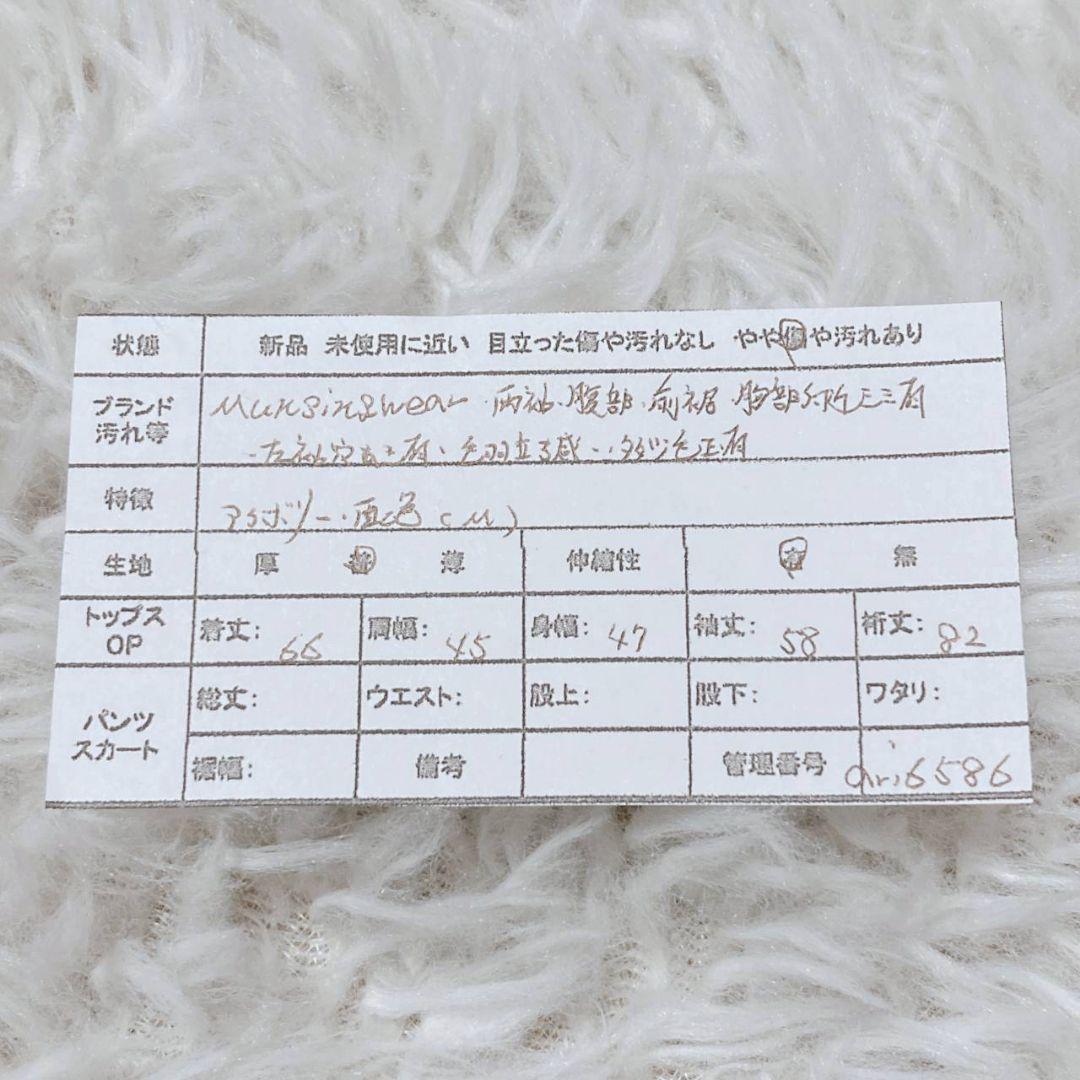 状態 新品 未使用に近い 目立った傷や汚れなし やや傷や汚れあり
ブランド 汚れ等 Munsingwear 両袖・腹部・前裾・胸部
左袖 毛羽立ち感 毛玉有
特徴
生地 厚 普 薄 伸縮性 有 無
トップス OP 着丈: 66 肩幅: 45 身幅: 47 袖丈: 58 裄丈: 82
パンツ スカート 総丈: ウエスト: 股上: 股下: ワタリ:
裾幅: 備考 管理番号 ari6586